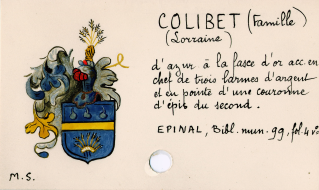 COLIBET (Famille)
(Lorraine)
d'azur à la fasce d'or acc. en
chef de trois larmes d'argent
et en pointe d'une couronne
d'épis du second.
EPINAL, Bibl. mun. 99, fol. 4 vº
M.S.